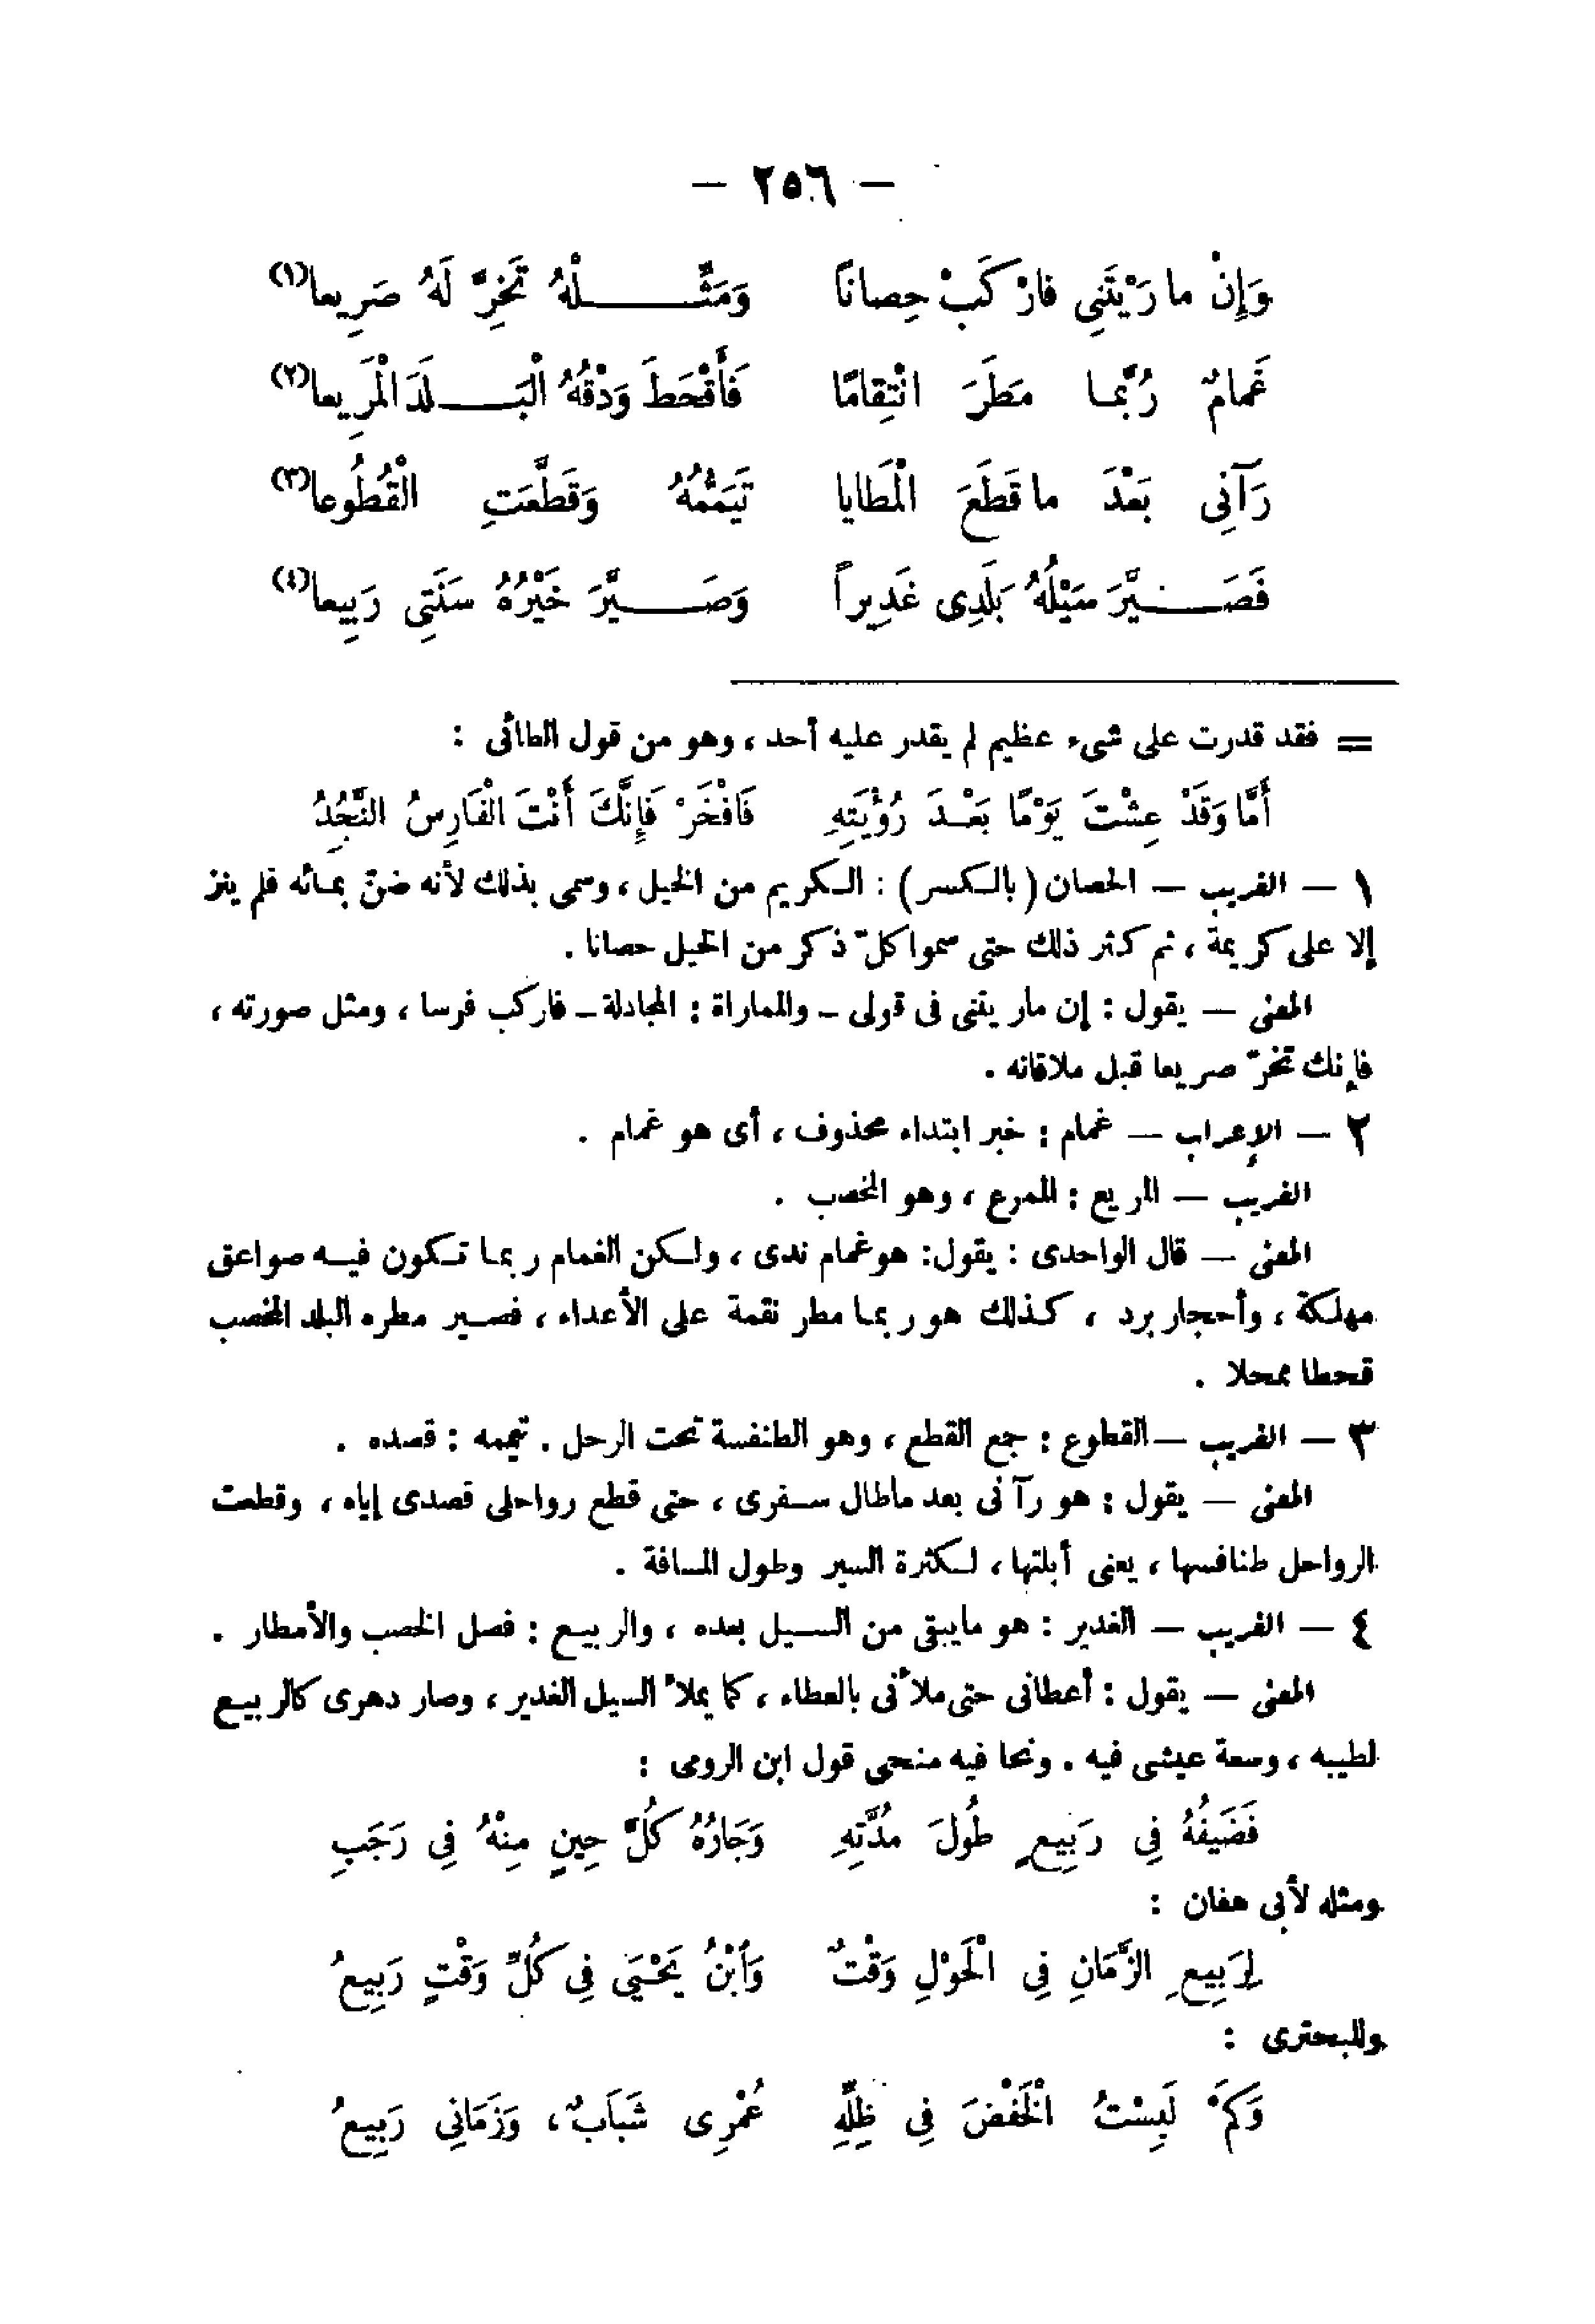 — ٢٥٦ —
وَإِنْ مارَيْتَنِى فارْكَبْ حِصانًا وَمَثِّلْهُ تَخِرَّ لَهُ صَرِيعا(١)
غَمامٌ رُبَّمَا مَطَرَ انْتِقامًا فَأَقْحَطَ وَدْقُهُ الْبَلَدَ الْمَرِيعا(٢)
رَآنِى بَعْدَ ماقَطَعَ الْمَطايا تَيَمُّمُهُ وَقَطَّعَتِ الْقُطُوعا(٣)
فَصَيَّرَ سَيْلُهُ بَلَدِى غَدِيراً وَصَيَّرَ خَيْرُهُ سَنَتِى رَبِيعا(٤)
= فقد قدرت على شىء عظيم لم يقدر عليه أحد ، وهو من قول الطائى :
أَمَّا وَقَدْ عِشْتَ يَوْمًا بَعْدَ رُؤْيَتِهِ فَافْخَرْ فَإِنَّكَ أَنْتَ الْفَارِسُ النَّجُدُ
١ — الغريب — الحصان (بالكسر) : الكريم من الخيل ، وسمى بذلك لأنه ضنّ بمائه فلم ينز
إلا على كريمة ، ثم كثر ذلك حتى سموا كلّ ذكر من الخيل حصانا .
المعنى — يقول : إن ماريتنى فى قولى ــ والمماراة : المجادلة ــ فاركب فرسا ، ومثل صورته ،
فإنك تخرّ صريعا قبل ملاقاته .
٢ — الإعراب — غمام : خبر ابتداء محذوف ، أى هو غمام .
الغريب — المريع : الممرع ، وهو المخصب .
المعنى — قال الواحدى : يقول: هو غمام ندى ، ولكن الغمام ربما تكون فيه صواعق
مهلكة ، وأحجار برد ، كذلك هو ربما مطر نقمة على الأعداء ، فصير مطره البلد المخصب
قحطا ممحلا .
٣ — الغريب — القطوع : جمع القطع ، وهو الطنفسة تحت الرحل . تيممه : قصده .
المعنى — يقول : هو رآنى بعد ماطال سفرى ، حتى قطع رواحلى قصدى إياه ، وقطعت
الرواحل طنافسها ، يعنى أبلتها ، لكثرة السير وطول المسافة .
٤ — الغريب — الغدير : هو مايبقى من السيل بعده ، والربيع : فصل الخصب والأمطار .
المعنى — يقول : أعطانى حتى ملأنى بالعطاء ، كما يملأ السيل الغدير ، وصار دهرى كالربيع
لطيبه ، وسعة عيشى فيه . ونحا فيه منحى قول ابن الرومى :
فَضَيفُهُ فِى رَبِيعٍ طُولَ مُدَّتِهِ وَجَارُهُ كُلَّ حِينٍ مِنْهُ فِى رَجَبِ
ومثله لأبى هفان :
لِرَبِيعِ الزَّمَانِ فِى الْحَوْلِ وَقْتٌ وَأَبْنُ يَحْيَى فِى كُلِّ وَقْتٍ رَبِيعُ
وللبحترى :
وَكَمْ لَبِسْتُ الْخَفْضَ فِى ظِلِّهِ عُمْرِى شَبَابٌ ، وَزَمَانِى رَبِيعُ